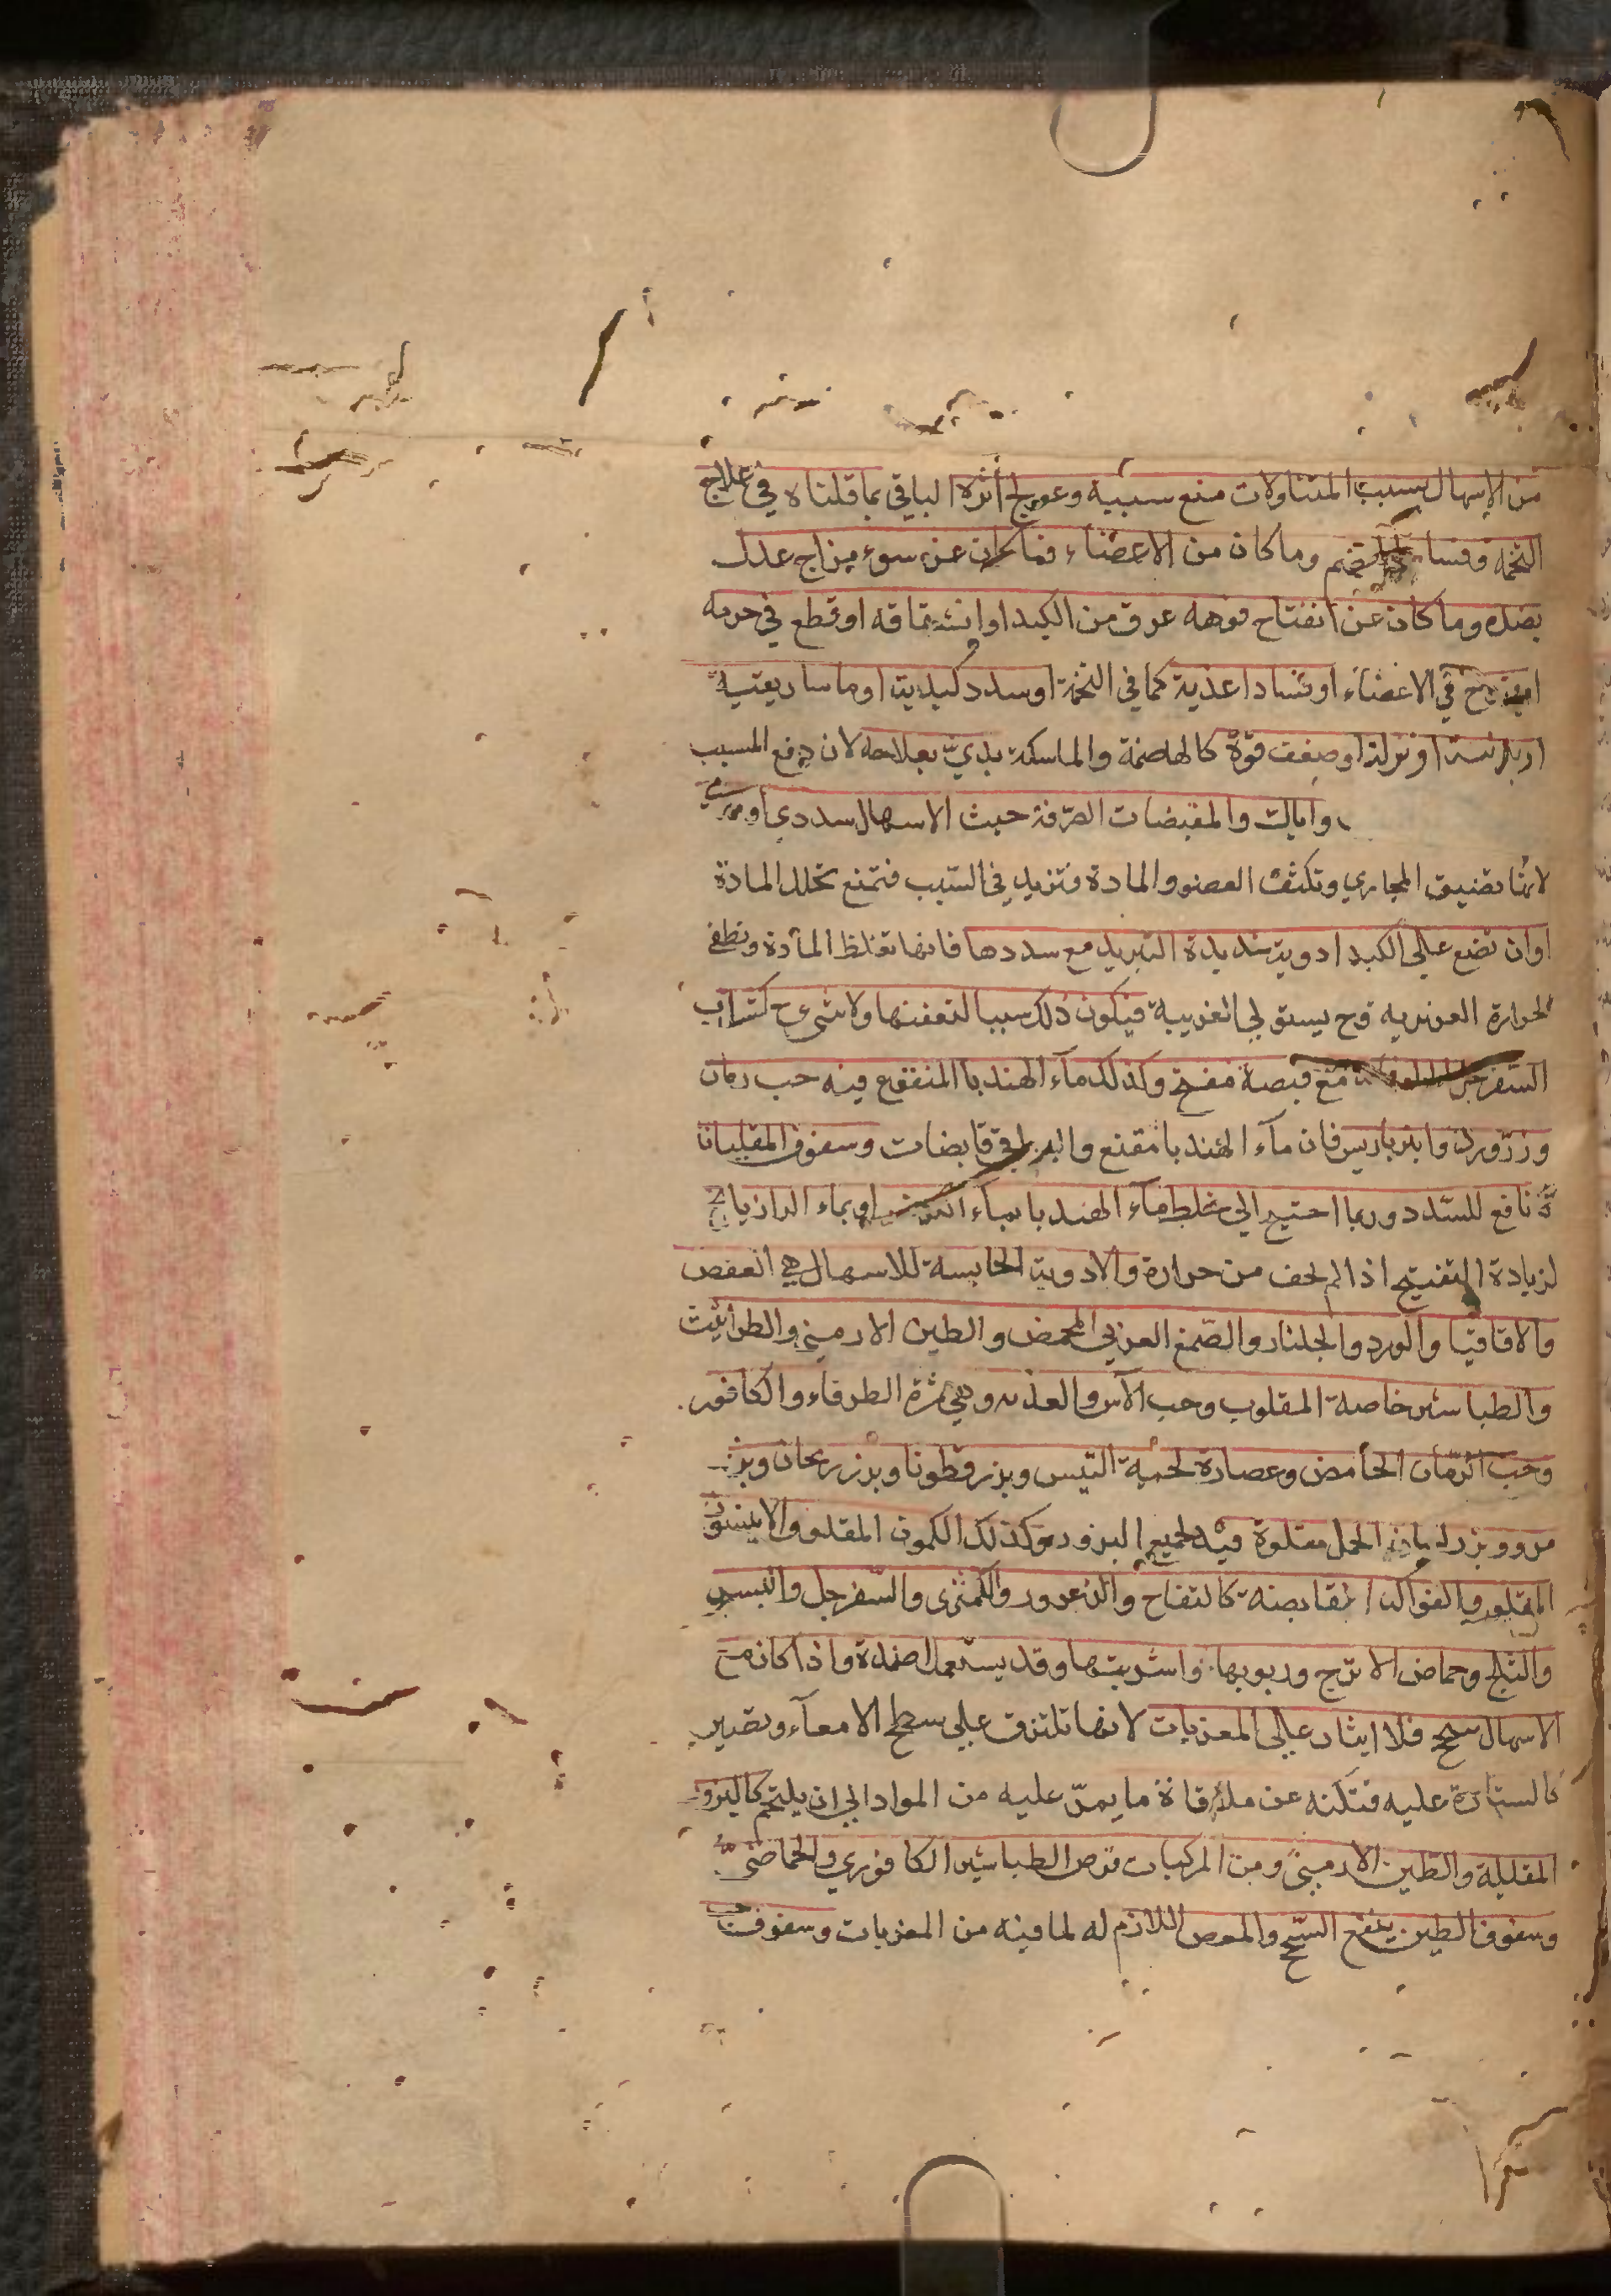 من الاسهال بسبب المتناولات منع سببه وعولج اثره الباقي بما قلناه في علاج
التخمة وفساد الهضم وما كان من الاعضاء فما كان عن سوء مزاج عدل
بضده وما كان عن انفتاح فوهه عرق من الكبد او انشقاقه او قطع في جرمه
او قروح في الاعضاء او فساد اغذية كما في التخمة او سدد كبدية او ماساريقية
او نزلة او ضعف قوة كالهاضمة والماسكة بدئ بعلاجه لان دفع المسبب
واياك والمقبضات الصرفة حيث الاسهال سددي او
لانها تضيق المجاري وتكثف العضو والمادة وتزيد في السبب فتمنع تحلل المادة
اوان تضع على الكبد ادوية شديدة التبريد مع سددها فانها تغلظ المادة وتطفئ
الحرارة الغريزيه وح يستولي الغريبة فيكون ذلك سببا لتعفنها ولا شيء ح كشراب
السفرجل مع قبضه مفتح وكذلك ماء الهندبا المنقع فيه حب رمان
وزر ورد وانبرباريس فان ماء الهندبا مقنع والبواقي قابضات وسفوف المقلياثا
نافع للسدد وربما احتيج الي خلط ماء الهندبا بماء الكرفس او بماء الرازيانج
لزيادة التفتيح اذا لم يخف من حرارة والادوية الحابسة للاسهال هي العفص
والاقاقيا والورد والجلنار والصمغ العربي المحمص والطين الارميني والطراثيث
والطباشير خاصة المقلوب وحب الآس والعذبه وهي ثمرة الطرفاء والكافور.
وحب الرمان الحامض وعصارة لحية التيس وبزر قطونا وبزر ريحان وبزر
مرو وبزر لسان الحمل مقلوة فيه لجميع البزور وكذلك الكمون المقلو والانيسون
المقلو والفواكه القابضة كالتفاح والزعرور والكمثرى والسفرجل والبسر
والثلج وحماض الاترج وربوبها واشربتها وقد يستعمل اضمدة واذا كان مع
الاسهال سحج فلا ايثار على المغريات لانها تلتزق على سطح الامعاء وتصير
كالستارة عليه فتكنه عن ملاقاة ما يمر عليه من المواد الي ان يلتحم كالبزور
المقلية والطين الارميني ومن المركبات قرص الطباشير الكافوري والحماضي
وسفوف الطين ينفع السحج والمغص اللازم له لما فيه من المغريات وسفوف حب